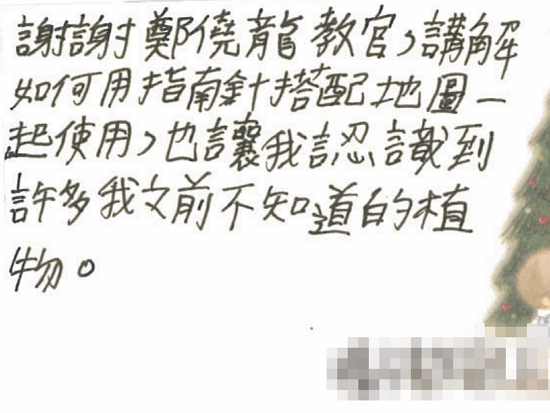 謝謝鄭僥龍教官,講解
如何用指南針搭配地圖一
起使用,也讓我認識到
許多我文前不知道的植
物。